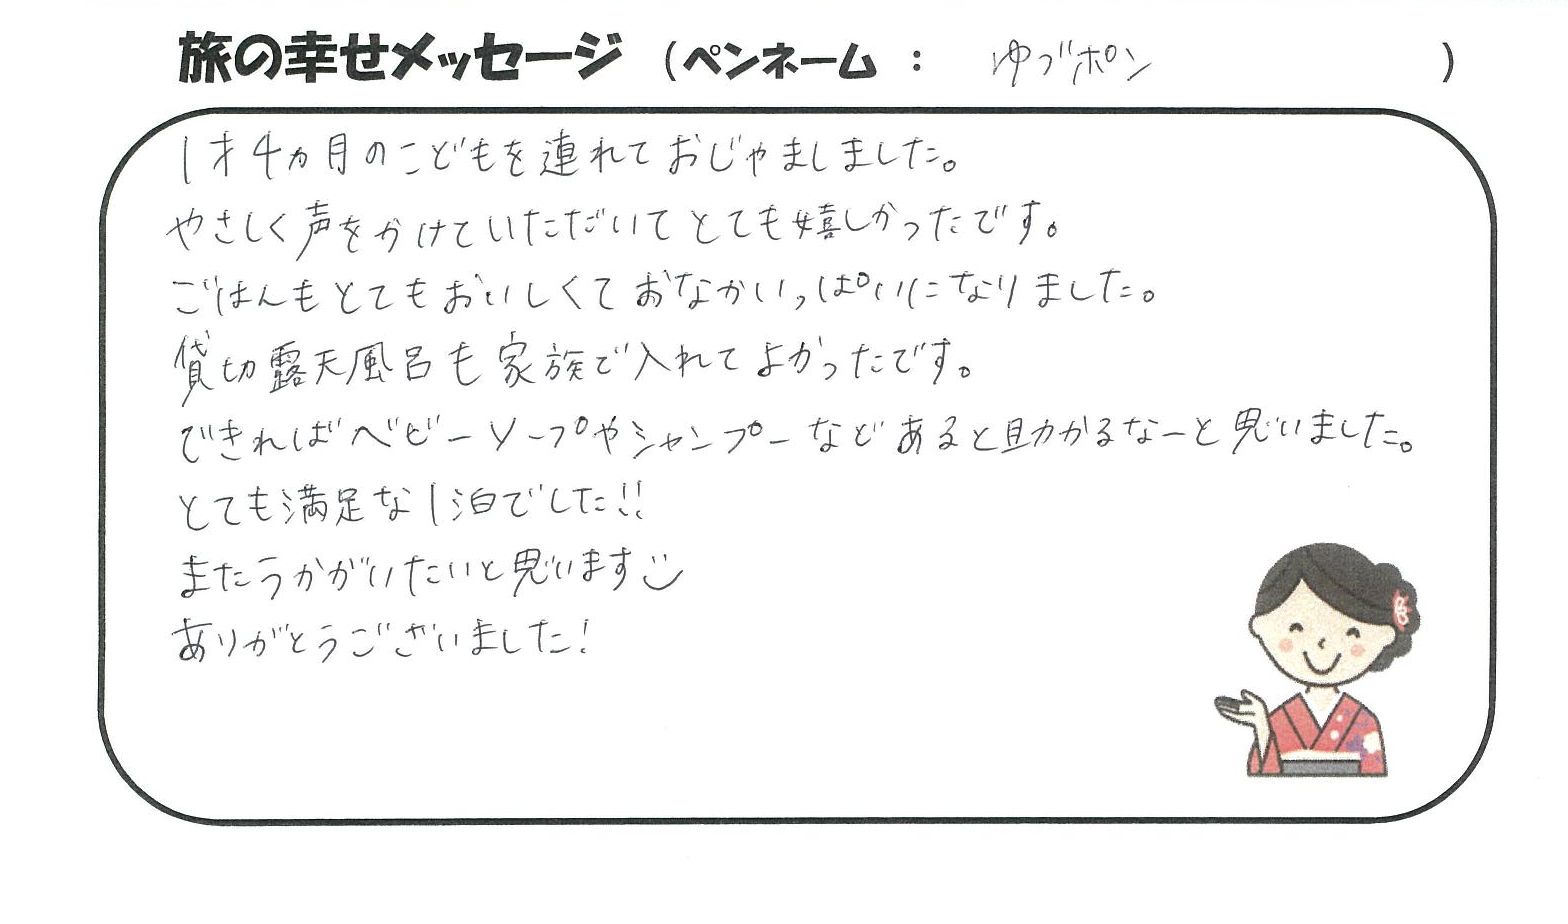 旅の幸せメッセージ（ペンネーム： ゆづポン ）
1才4ヵ月のこどもを連れておじゃましました。
やさしく声をかけていただいてとても嬉しかったです。
ごはんもとてもおいしくておなかいっぱいになりました。
貸切露天風呂も家族で入れてよかったです。
できればベビーソープやシャンプーなどあると助かるなーと思いました。
とても満足な1泊でした!!
またうかがいたいと思います
ありがとうございました!